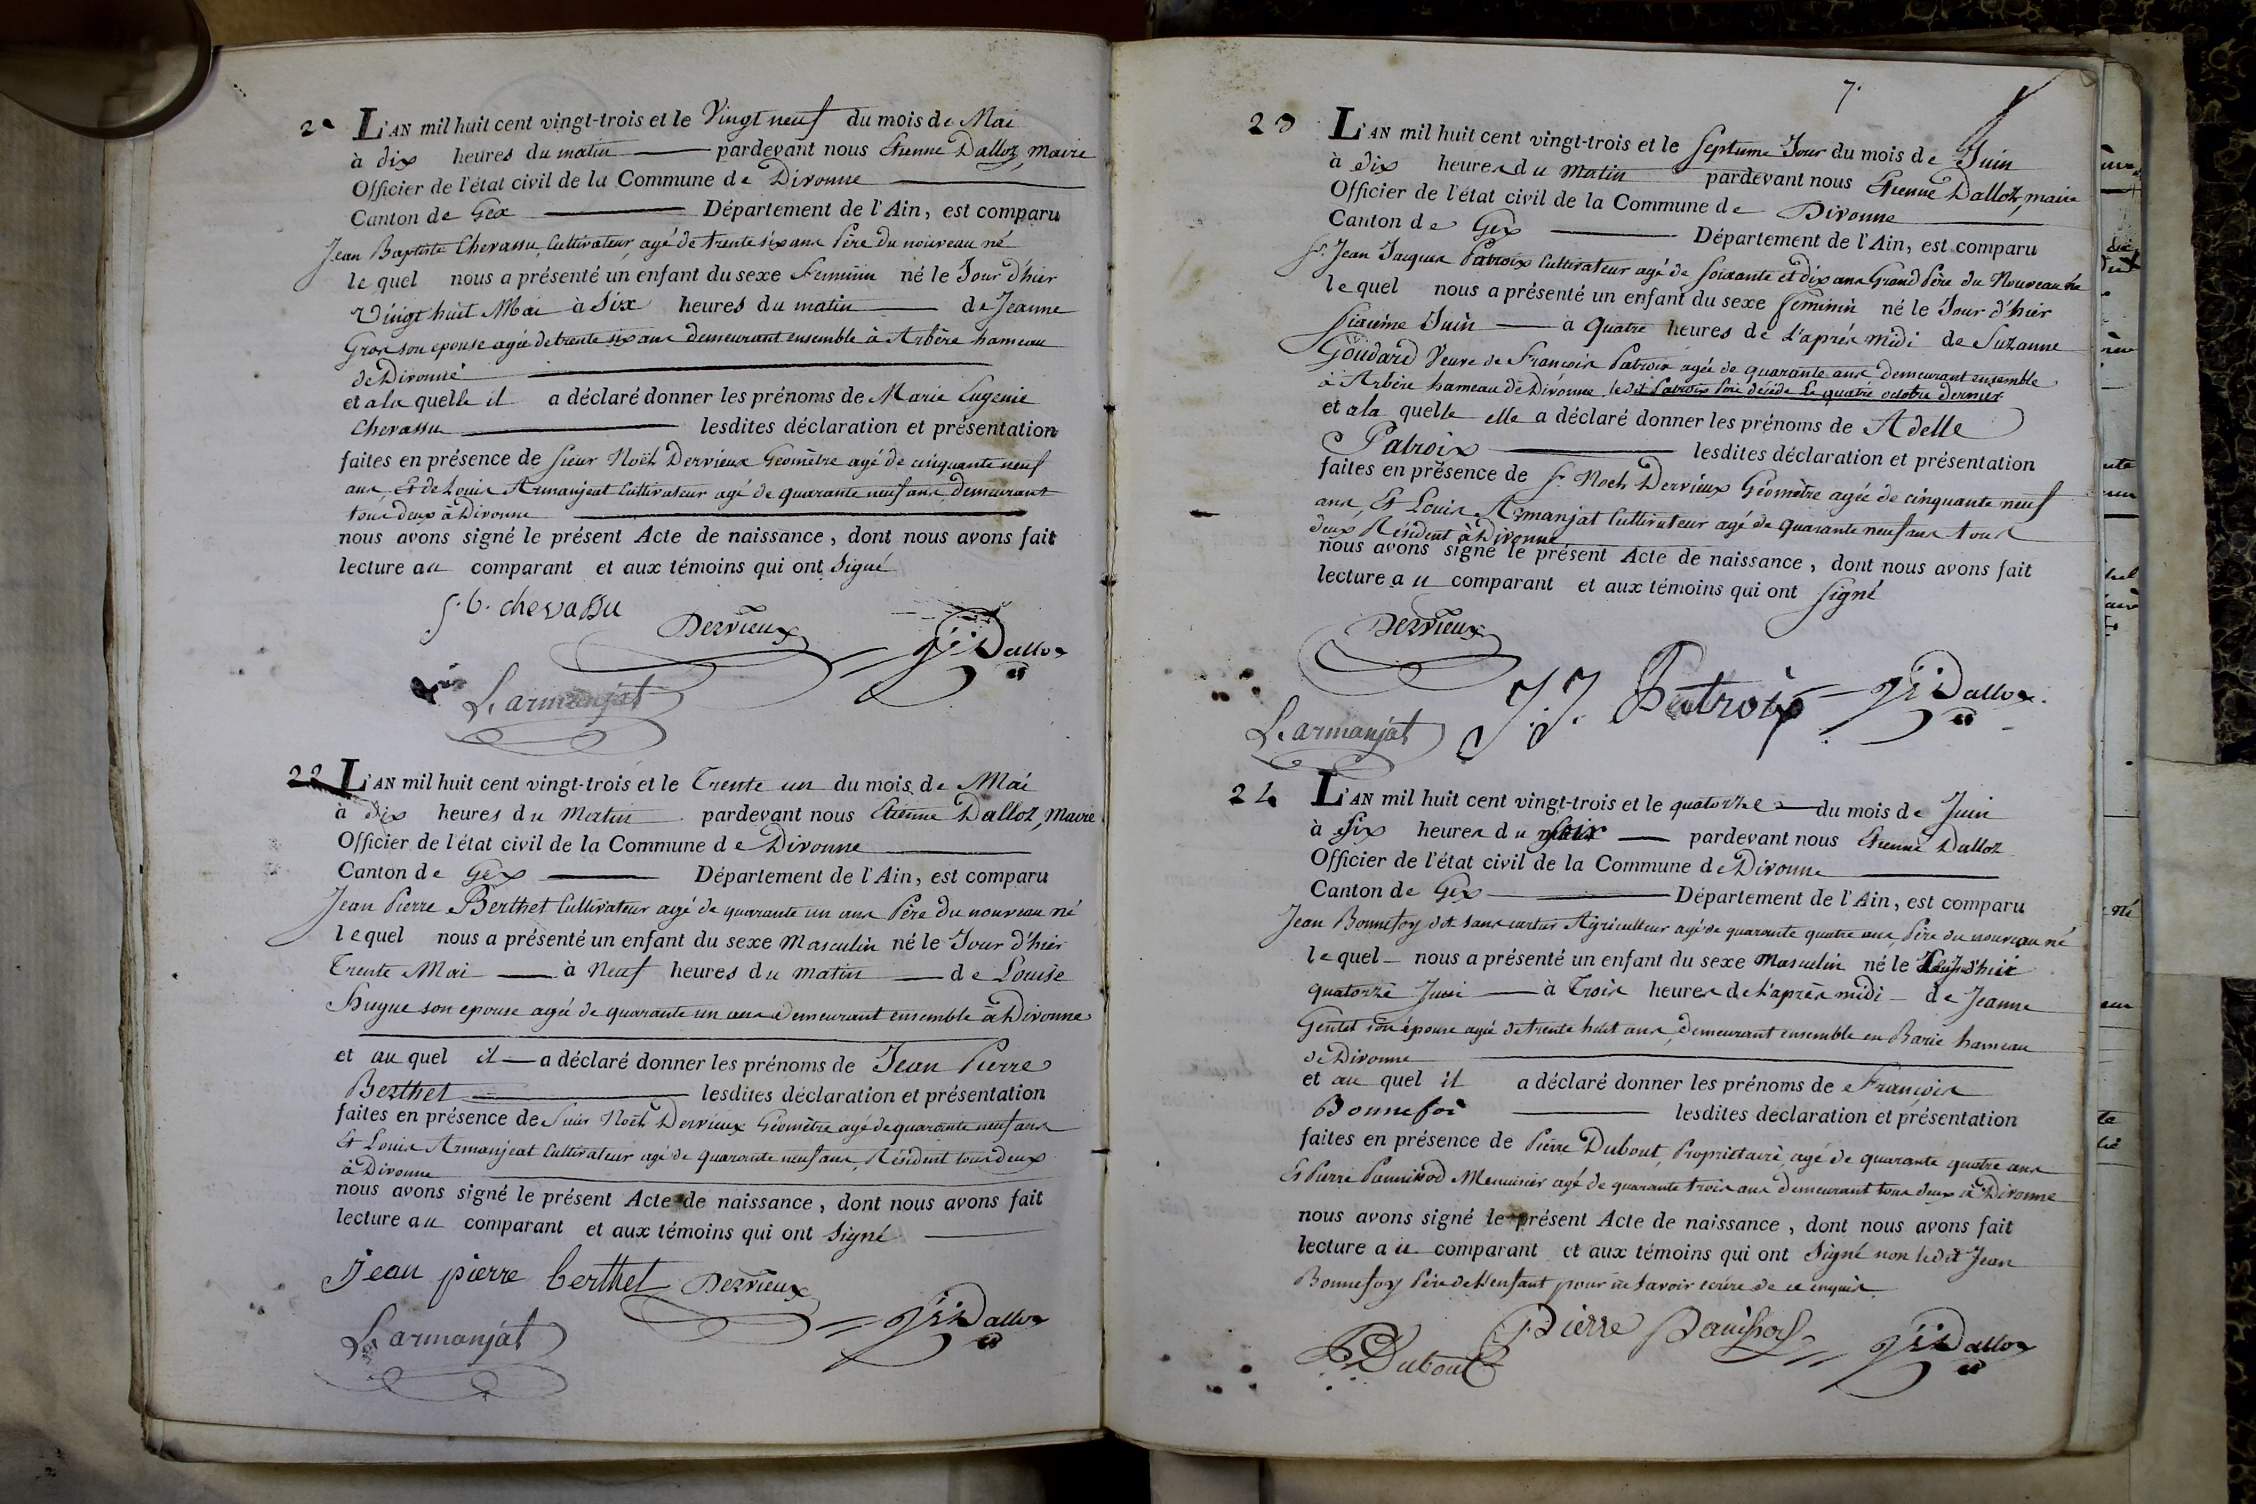 L'AN mil huit cent vingt-trois et le Vingt neuf du mois de Mai
à dix heures du matin pardevant nous Etienne Dalloz, maire
Officier de l'état civil de la Commune de Divonne
Canton de Gex Département de l'Ain, est comparu
Jean Baptiste Chevassu, Cultivateur, agé de trente six ans Père du nouveau né
le quel nous a présenté un enfant du sexe Feminin né le Jour d'hier
Vingt huit Mai à Six heures du matin de Jeanne
Gros son epouse agée de trente six ans demeurant ensemble à Arbère hameau
de Divonne
et a la quelle il a déclaré donner les prénoms de Marie Eugenie
Chevassu lesdites déclaration et présentation
faites en présence de Sieur Noël Dervieux Géomètre agé de cinquante neuf
ans, Et de Louis Armanjeat Cultivateur agé de quarante neuf ans, demeurant
tous deux à Divonne
nous avons signé le présent Acte de naissance, dont nous avons fait
lecture au comparant et aux témoins qui ont Signé
J. b. chevassu
Dervieux
Dalloz
L. armanjat
22 L'AN mil huit cent vingt-trois et le Trente un du mois de Mai
à Dix heures du Matin pardevant nous Etienne Dalloz, Maire
Officier de l'état civil de la Commune de Divonne
Canton de Gex Département de l'Ain, est comparu
Jean Pierre Berthet Cultivateur agé de quarante un ans Père du nouveau né
le quel nous a présenté un enfant du sexe Masculin né le Jour d'hier
Trente Mai à Neuf heures du matin de Louise
Hugue son epouse agée de quarante un ans demeurant ensemble à Divonne
et au quel il a déclaré donner les prénoms de Jean Pierre
Berthet lesdites déclaration et présentation
faites en présence de Sieur Noël Dervieux Géomètre agé de quarante neuf ans
Et Louis Armanjeat Cultivateur agé de quarante neuf ans, Résident tous deux
à Divonne
nous avons signé le présent Acte de naissance, dont nous avons fait
lecture au comparant et aux témoins qui ont Signé
Jean pierre berthet
Dervieux
Dalloz
L. armanjat
7.
23 L'AN mil huit cent vingt-trois et le Septieme Jour du mois de Juin
à dix heures du Matin pardevant nous Etienne Dalloz, maire
Officier de l'état civil de la Commune de Divonne
Canton de Gex Département de l'Ain, est comparu
Sr. Jean Jacques Patroix Cultivateur agé de Soixante et dix ans Grand Père du Nouveau né
le quel nous a présenté un enfant du sexe feminin né le Jour d'hier
Sixieme Juin à Quatre heures de L'après midi de Suzanne
Goudard Veuve de François Patroix agée de quarante ans demeurant ensemble
à Arbère hameau de Divonne, ledit Patroix Père décédé Le quatre octobre dernier
et a la quelle elle a déclaré donner les prénoms de Adelle
Patroix lesdites déclaration et présentation
faites en présence de Sr. Noel Dervieux Géomètre agée de cinquante neuf
ans, Et Louis Armanjat Cultivateur agé de Quarante neuf ans tous
deux Résident à Divonne
nous avons signé le présent Acte de naissance, dont nous avons fait
lecture au comparant et aux témoins qui ont Signé
Dervieux
J. J. Patroix
Dalloz
L. armanjat
24 L'AN mil huit cent vingt-trois et le quatorze du mois de Juin
à Six heures du Soir pardevant nous Etienne Dalloz
Officier de l'état civil de la Commune de Divonne
Canton de Gex Département de l'Ain, est comparu
Jean Bonnefoy dit sans Agriculteur agé de quarante quatre ans Père du nouveau né
le quel nous a présenté un enfant du sexe Masculin né le
quatorze Juin à Trois heures de L'après midi de Jeanne
Gentet son épouse agée de trente huit ans, demeurant ensemble en Barie hameau
de Divonne
et au quel il a déclaré donner les prénoms de François
Bonnefoi lesdites déclaration et présentation
faites en présence de Pierre Dubout, Propriétaire, agé de quarante quatre ans
Et Pierre Menuisier agé de quarante trois ans demeurant tous deux à Divonne
nous avons signé le présent Acte de naissance, dont nous avons fait
lecture au comparant et aux témoins qui ont Signé non ledit Jean
Bonnefoy Père de L'enfant pour ne Savoir ecrire de ce enquis.
Pierre
Dubout
Dalloz